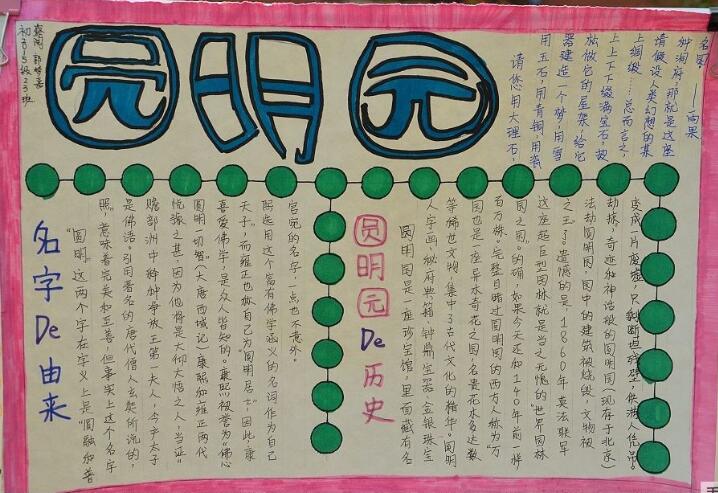 圆明园
请您用大理石，
用玉石，用青铜，用瓷
器建造一个梦，用雪
松做它的屋架，给它
上上下下缀满宝石，披
上绸缎……总而言之，
请假设人类幻想的某
种洞府，那就是这座
名园。——雨果
名字De由来
“圆明”这两个字在字义上是“圆融和普
照”，意味着完美和至善，但事实上这个名字
是佛语。引用著名的唐代僧人玄奘所说的，
瞻部洲中种种争放，王第一夫人，今产太子
悦豫之甚，因为他将是大仰大悟之人，当证“
圆明一切智”（大唐西域记）康熙和雍正两代
喜爱佛学，是众人皆知的，康熙被誉为“佛心
天子”，而雍正也称自己为圆明居士”。因此，康
熙选用这个富有佛学涵义的名词作为自己
宫苑的名字，一点也不意外。
圆明园De历史
圆明园是一座珍宝馆，里面藏有名
人字画、秘府典籍、钟鼎宝器、金银珠宝
等稀世文物，集中了古代文化的精华。圆明
园也是一座异木奇花之园，名贵花木多达数
百万株。完整目睹过圆明园的西方人称为“万
园之园”。的确，如果今天还和140年前一样
这座超巨型园林就是当之无愧的“世界园林
之王”了。遗憾的是，1860年英法联军
劫掠圆明园，园中的建筑被烧毁，文物被
劫掠，奇迹和神话般的圆明园（现存于北京）
变成一片废墟，只剩断垣残壁，供游人凭吊。